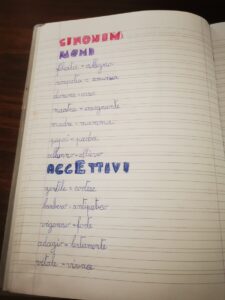 SINONIMI
NOMI
felicità = allegria
simpatia =
dimora = casa
maestra = insegnante
madre = mamma
papà = padre
alunno = allievo
AGGETTIVI
gentile = cortese
= antipatico
vigoroso = forte
adagio = lentamente
vitale = vivace